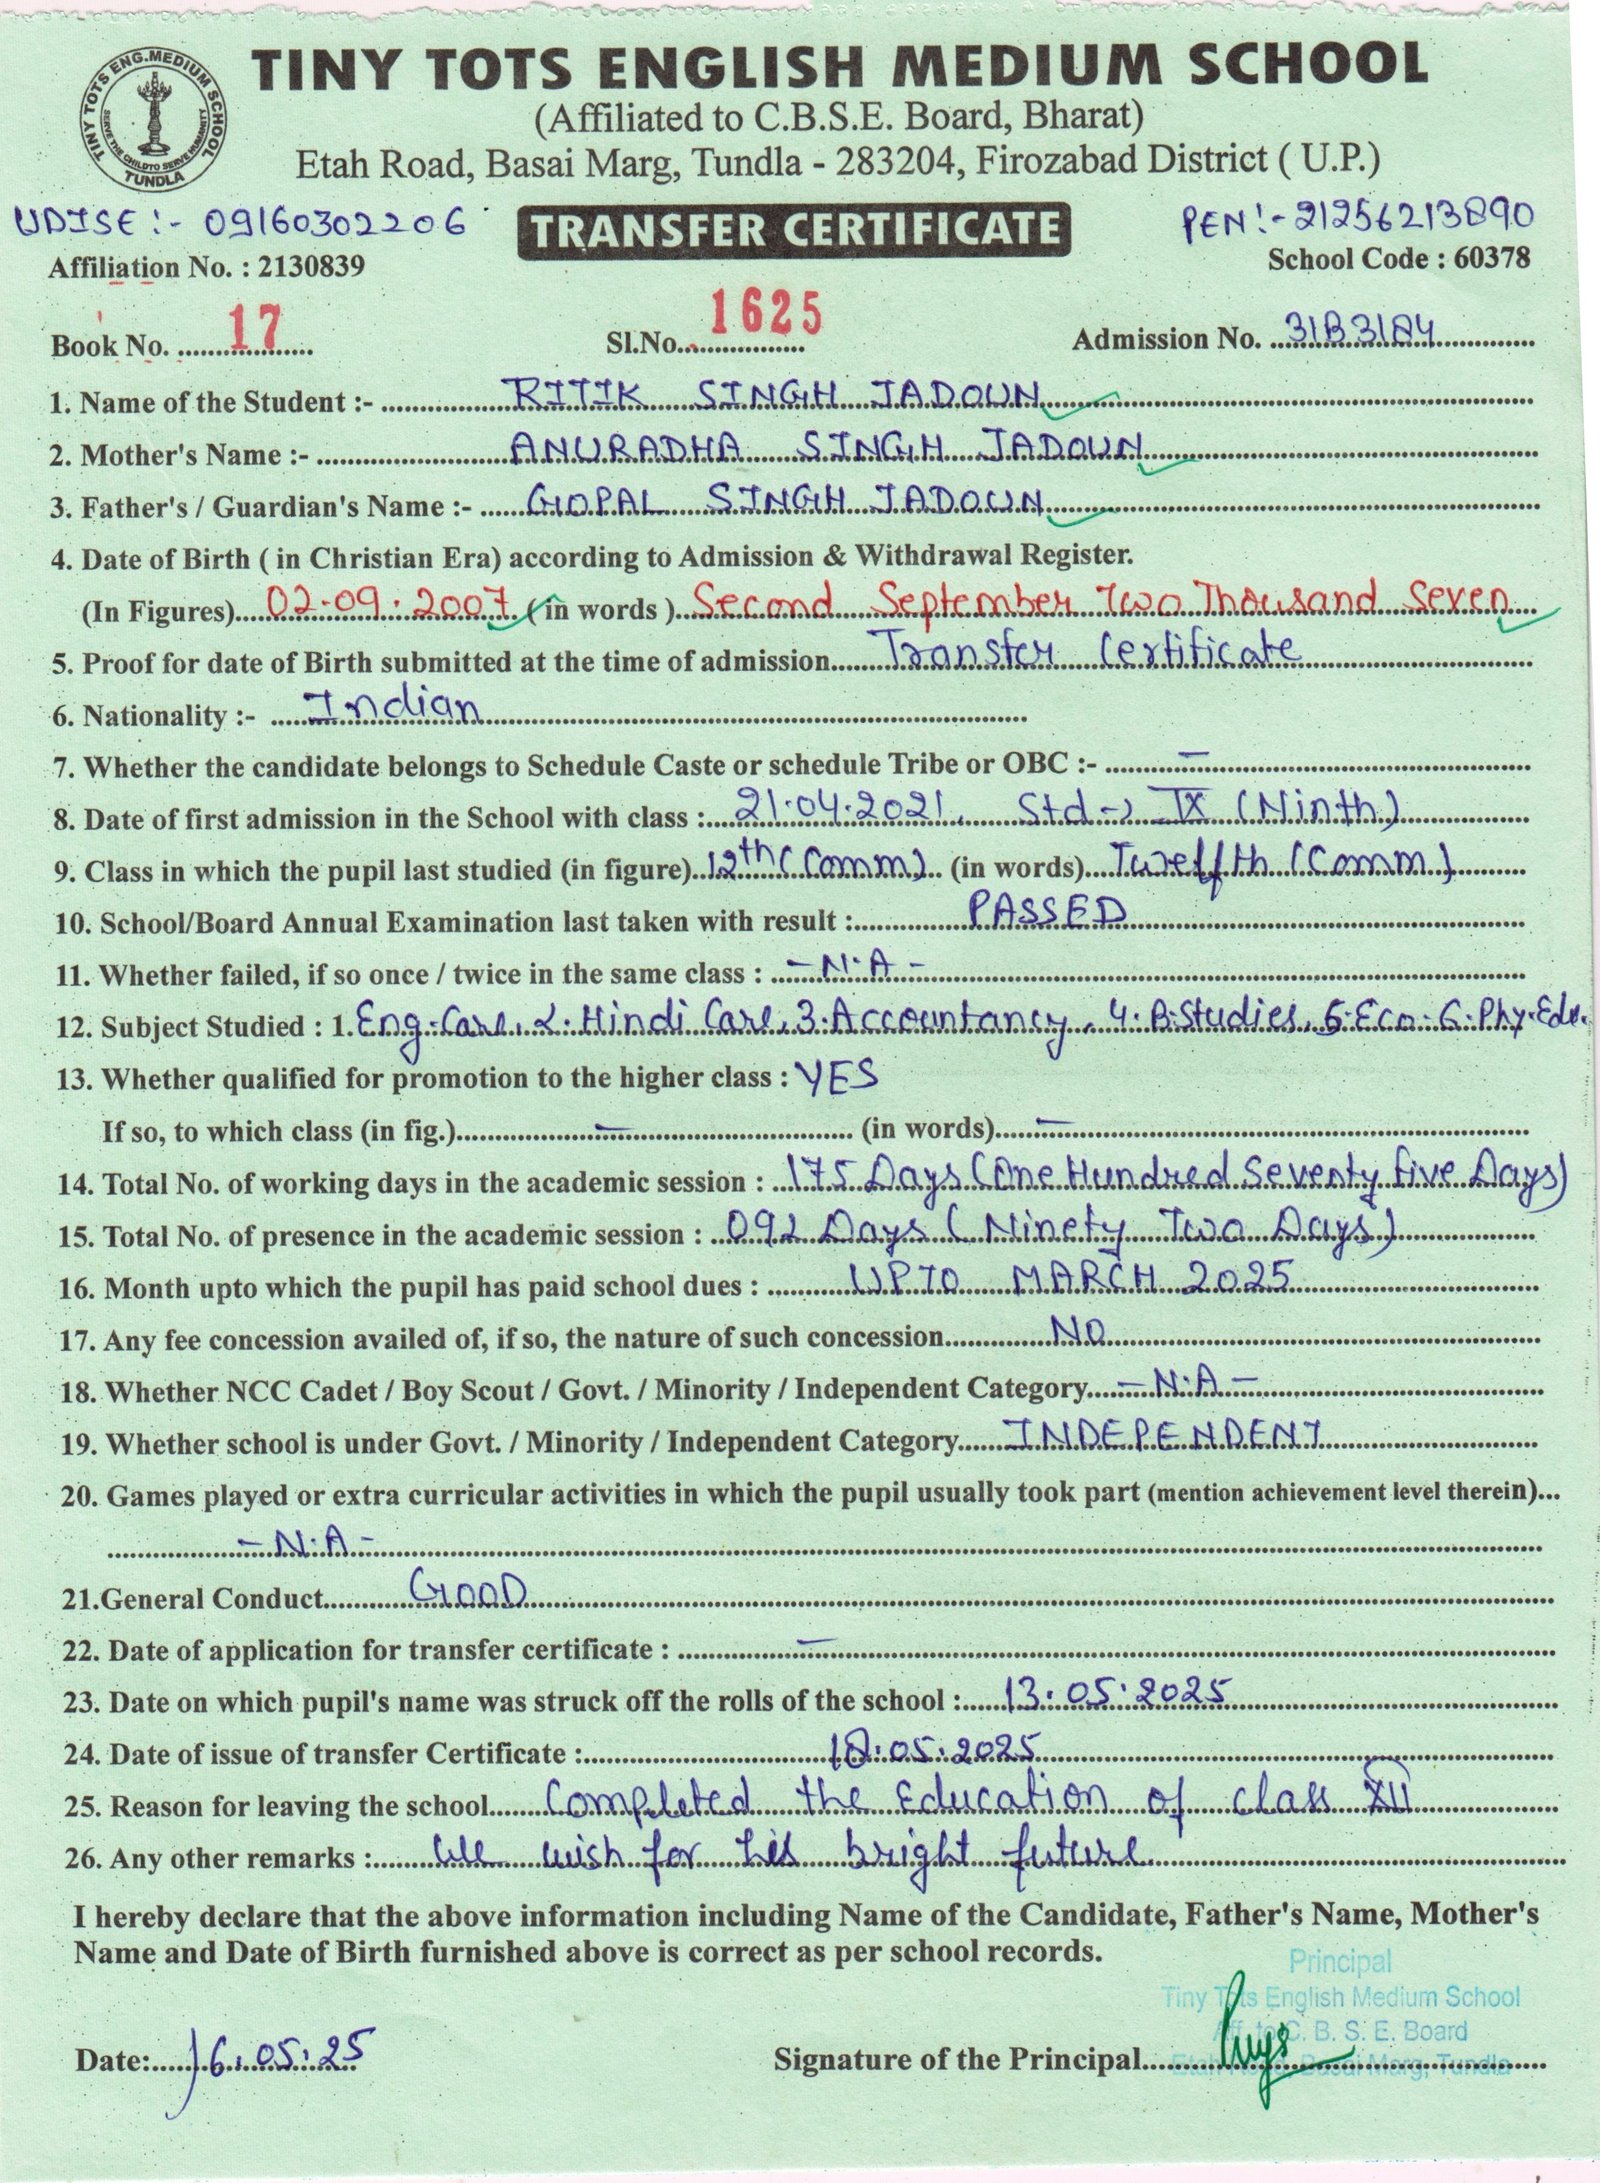 TINY TOTS ENG.MEDIUM SCHOOL
SERVE THE CHILD TO SERVE HUMANITY
TUNDLA
TINY TOTS ENGLISH MEDIUM SCHOOL
(Affiliated to C.B.S.E. Board, Bharat)
Etah Road, Basai Marg, Tundla - 283204, Firozabad District ( U.P.)
UDISE :- 09160302206 TRANSFER CERTIFICATE PEN :- 21256213890
Affiliation No. : 2130839 School Code : 60378
Book No. 17 Sl.No. 1625 Admission No. 31B3184
1. Name of the Student :- RITIK SINGH JADOUN
2. Mother's Name :- ANURADHA SINGH JADOUN
3. Father's / Guardian's Name :- GOPAL SINGH JADOUN
4. Date of Birth ( in Christian Era) according to Admission & Withdrawal Register.
(In Figures) 02.09.2007 (in words ) Second September Two Thousand Seven
5. Proof for date of Birth submitted at the time of admission Transfer Certificate
6. Nationality :- Indian
7. Whether the candidate belongs to Schedule Caste or schedule Tribe or OBC :- —
8. Date of first admission in the School with class : 21.04.2021, Std -> IX (Ninth)
9. Class in which the pupil last studied (in figure) 12th (Comm) (in words) Twelfth (Comm)
10. School/Board Annual Examination last taken with result : PASSED
11. Whether failed, if so once / twice in the same class : - N.A -
12. Subject Studied : 1. Eng.Core, 2. Hindi Core, 3. Accountancy, 4. B.Studies, 5. Eco. 6. Phy.Edu.
13. Whether qualified for promotion to the higher class : YES
If so, to which class (in fig.) — (in words) —
14. Total No. of working days in the academic session : 175 Days (One Hundred Seventy five Days)
15. Total No. of presence in the academic session : 092 Days ( Ninety Two Days )
16. Month upto which the pupil has paid school dues : UPTO MARCH 2025
17. Any fee concession availed of, if so, the nature of such concession NO
18. Whether NCC Cadet / Boy Scout / Govt. / Minority / Independent Category - N.A -
19. Whether school is under Govt. / Minority / Independent Category INDEPENDENT
20. Games played or extra curricular activities in which the pupil usually took part (mention achievement level therein)...
- N.A -
21.General Conduct GOOD
22. Date of application for transfer certificate : —
23. Date on which pupil's name was struck off the rolls of the school : 13.05.2025
24. Date of issue of transfer Certificate : 18.05.2025
25. Reason for leaving the school Completed the Education of class XII
26. Any other remarks : We wish for his bright future
I hereby declare that the above information including Name of the Candidate, Father's Name, Mother's
Name and Date of Birth furnished above is correct as per school records.
Principal
Tiny Tots English Medium School
Aff. to C. B. S. E. Board
Etah Road, Basai Marg, Tundla
Date: 16.05.25 Signature of the Principal